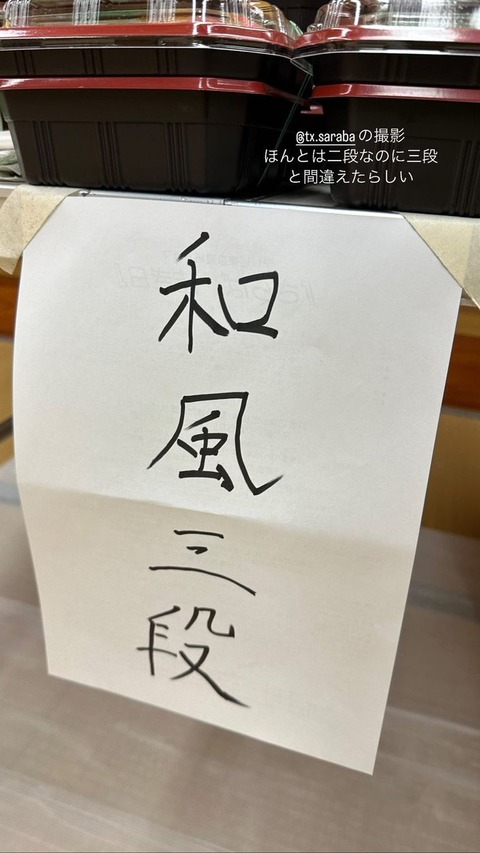 @tx.sarabaの撮影
ほんとは二段なのに三段
と間違えたらしい
和風三段